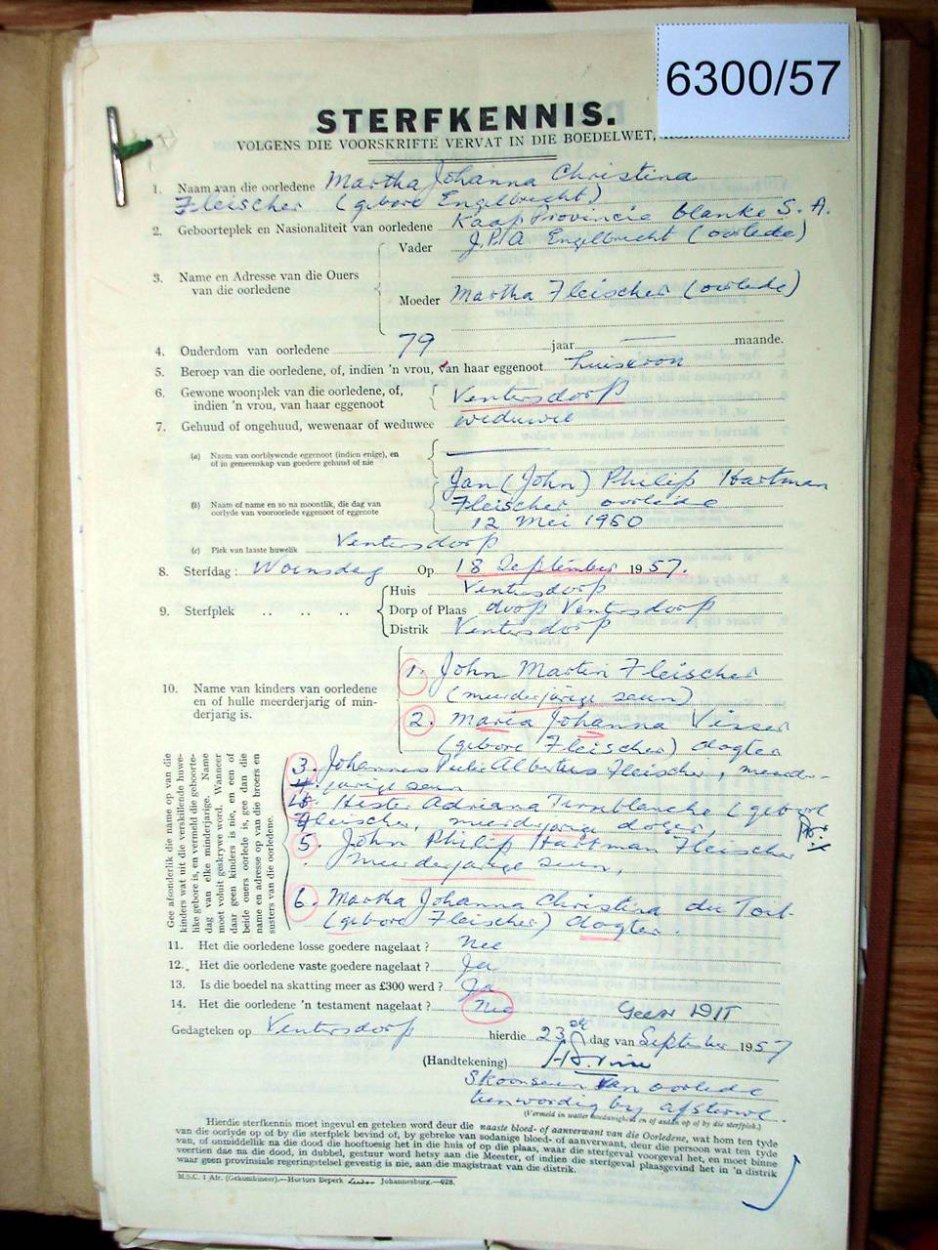 6300/57
STERFKENNIS.
VOLGENS DIE VOORSKRIFTE VERVAT IN DIE BOEDELWET,
1. Naam van die oorledene Martha Johanna Christina
Fleischer (gebore Engelbrecht)
2. Geboorteplek en Nasionaliteit van oorledene Kaap Provincie blanke S.A.
3. Name en Adresse van die Ouers van die oorledene
Vader J.P.A. Engelbrecht (oorlede)
Moeder Martha Fleischer (oorlede)
4. Ouderdom van oorledene 79 jaar — maande.
5. Beroep van die oorledene, of, indien 'n vrou, van haar eggenoot huisvrou
6. Gewone woonplek van die oorledene, of,
indien 'n vrou, van haar eggenoot Ventersdorp
7. Gehuud of ongehuud, wewenaar of weduwee weduwie
(a) Naam van oorblywende eggenoot (indien enige), en
of in gemeenskap van goedere gehuud of nie —
(b) Naam of name en so na moontlik, die dag van
oorlyde van vooroorlede eggenoot of eggenote
Jan (John) Philip Hartman
Fleischer oorlede
12 Mei 1950
(c) Plek van laaste huwelik Ventersdorp
8. Sterfdag: Woensdag Op 18 September 1957.
9. Sterfplek .. .. ..
Huis Ventersdorp
Dorp of Plaas dorp Ventersdorp
Distrik Ventersdorp
10. Name van kinders van oorledene
en of hulle meerderjarig of min-
derjarig is.
1. John Martin Fleischer
(meerderjarige seun)
2. Maria Johanna Visser
(gebore Fleischer) dogter
Gee afsonderlik die name op van die
kinders wat uit die verskillende huwe-
like gebore is, en vermeld die geboorte-
dag van elke minderjarige. Name
moet voluit geskrywe word. Wanneer
daar geen kinders is nie, en een of
beide ouers oorlede is, gee dan die
name en adresse op van die broers en
susters van die oorledene.
3. Johannes Petrus Albertus Fleischer, meerder-
jarige seun
4. Hester Adriana Terreblanche (gebore
Fleischer, meerderjarige dogter,
5. John Philip Hartman Fleischer
meerderjarige seun,
6. Martha Johanna Christina du Toit
(gebore Fleischer) dogter.
11. Het die oorledene losse goedere nagelaat? Nee
12. Het die oorledene vaste goedere nagelaat? Ja
13. Is die boedel na skatting meer as £300 werd? Ja
14. Het die oorledene 'n testament nagelaat? Nee
Gedagteken op Ventersdorp hierdie 23 dag van September 1957
(Handtekening)
Skoonseun van oorlede
teenwoordig by afsterwe.
(Vermeld in watter hoedanigheid en of anders op of by die sterfplek.)
Hierdie sterfkennis moet ingevul en geteken word deur die naaste bloed- of aanverwant van die Oorledene, wat hom ten tyde
van die oorlyde op of by die sterfplek bevind of, by gebreke van sodanige bloed- of aanverwant, deur die persoon wat ten tyde
van, of onmiddellik na die dood die hooftoesig het in die huis of op die plaas, waar die sterfgeval voorgeval het, en moet binne
veertien dae na die dood, in dubbel, gestuur word hetsy aan die Meester, of indien die sterfgeval plaasgevind het in 'n distrik
waar geen provinsiale regeringsetel gevestig is nie, aan die magistraat van die distrik.
M.S.C. 1 Afr. (Gekombineer).—Hortors Beperk Johannesburg.—628.